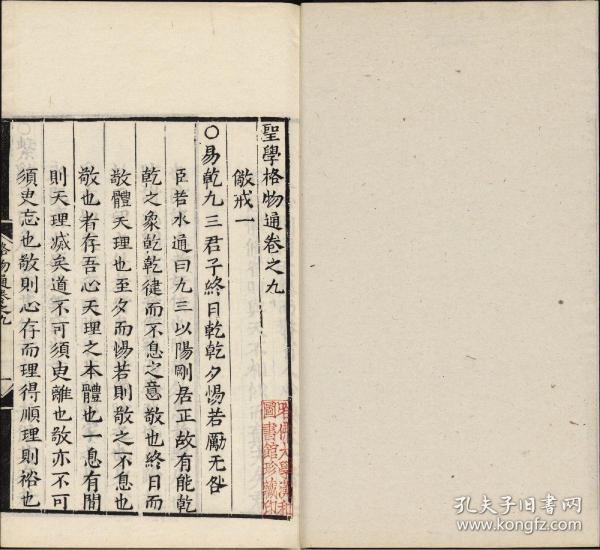 聖學格物通卷之九
儆戒一
○易乾九三君子終日乾乾夕惕若厲无咎
臣若水通曰九三以陽剛居正故有能乾
乾之象乾乾健而不息之意敬也終日而
敬體天理也至夕而惕若則敬之不息也
敬也者存吾心天理之本體也一息有間
則天理滅矣道不可須臾離也敬亦不可
須臾忘也敬則心存而理得順理則裕也
格物通卷之九
一
哈佛大學漢和
圖書館珍藏印
孔夫子旧书网
www.kongfz.com